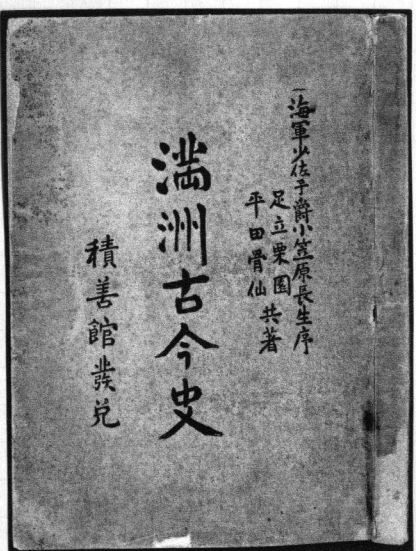 海軍少佐子爵小笠原長生序
足立栗園
平田骨仙 共著
満洲古今史
積善館発兌